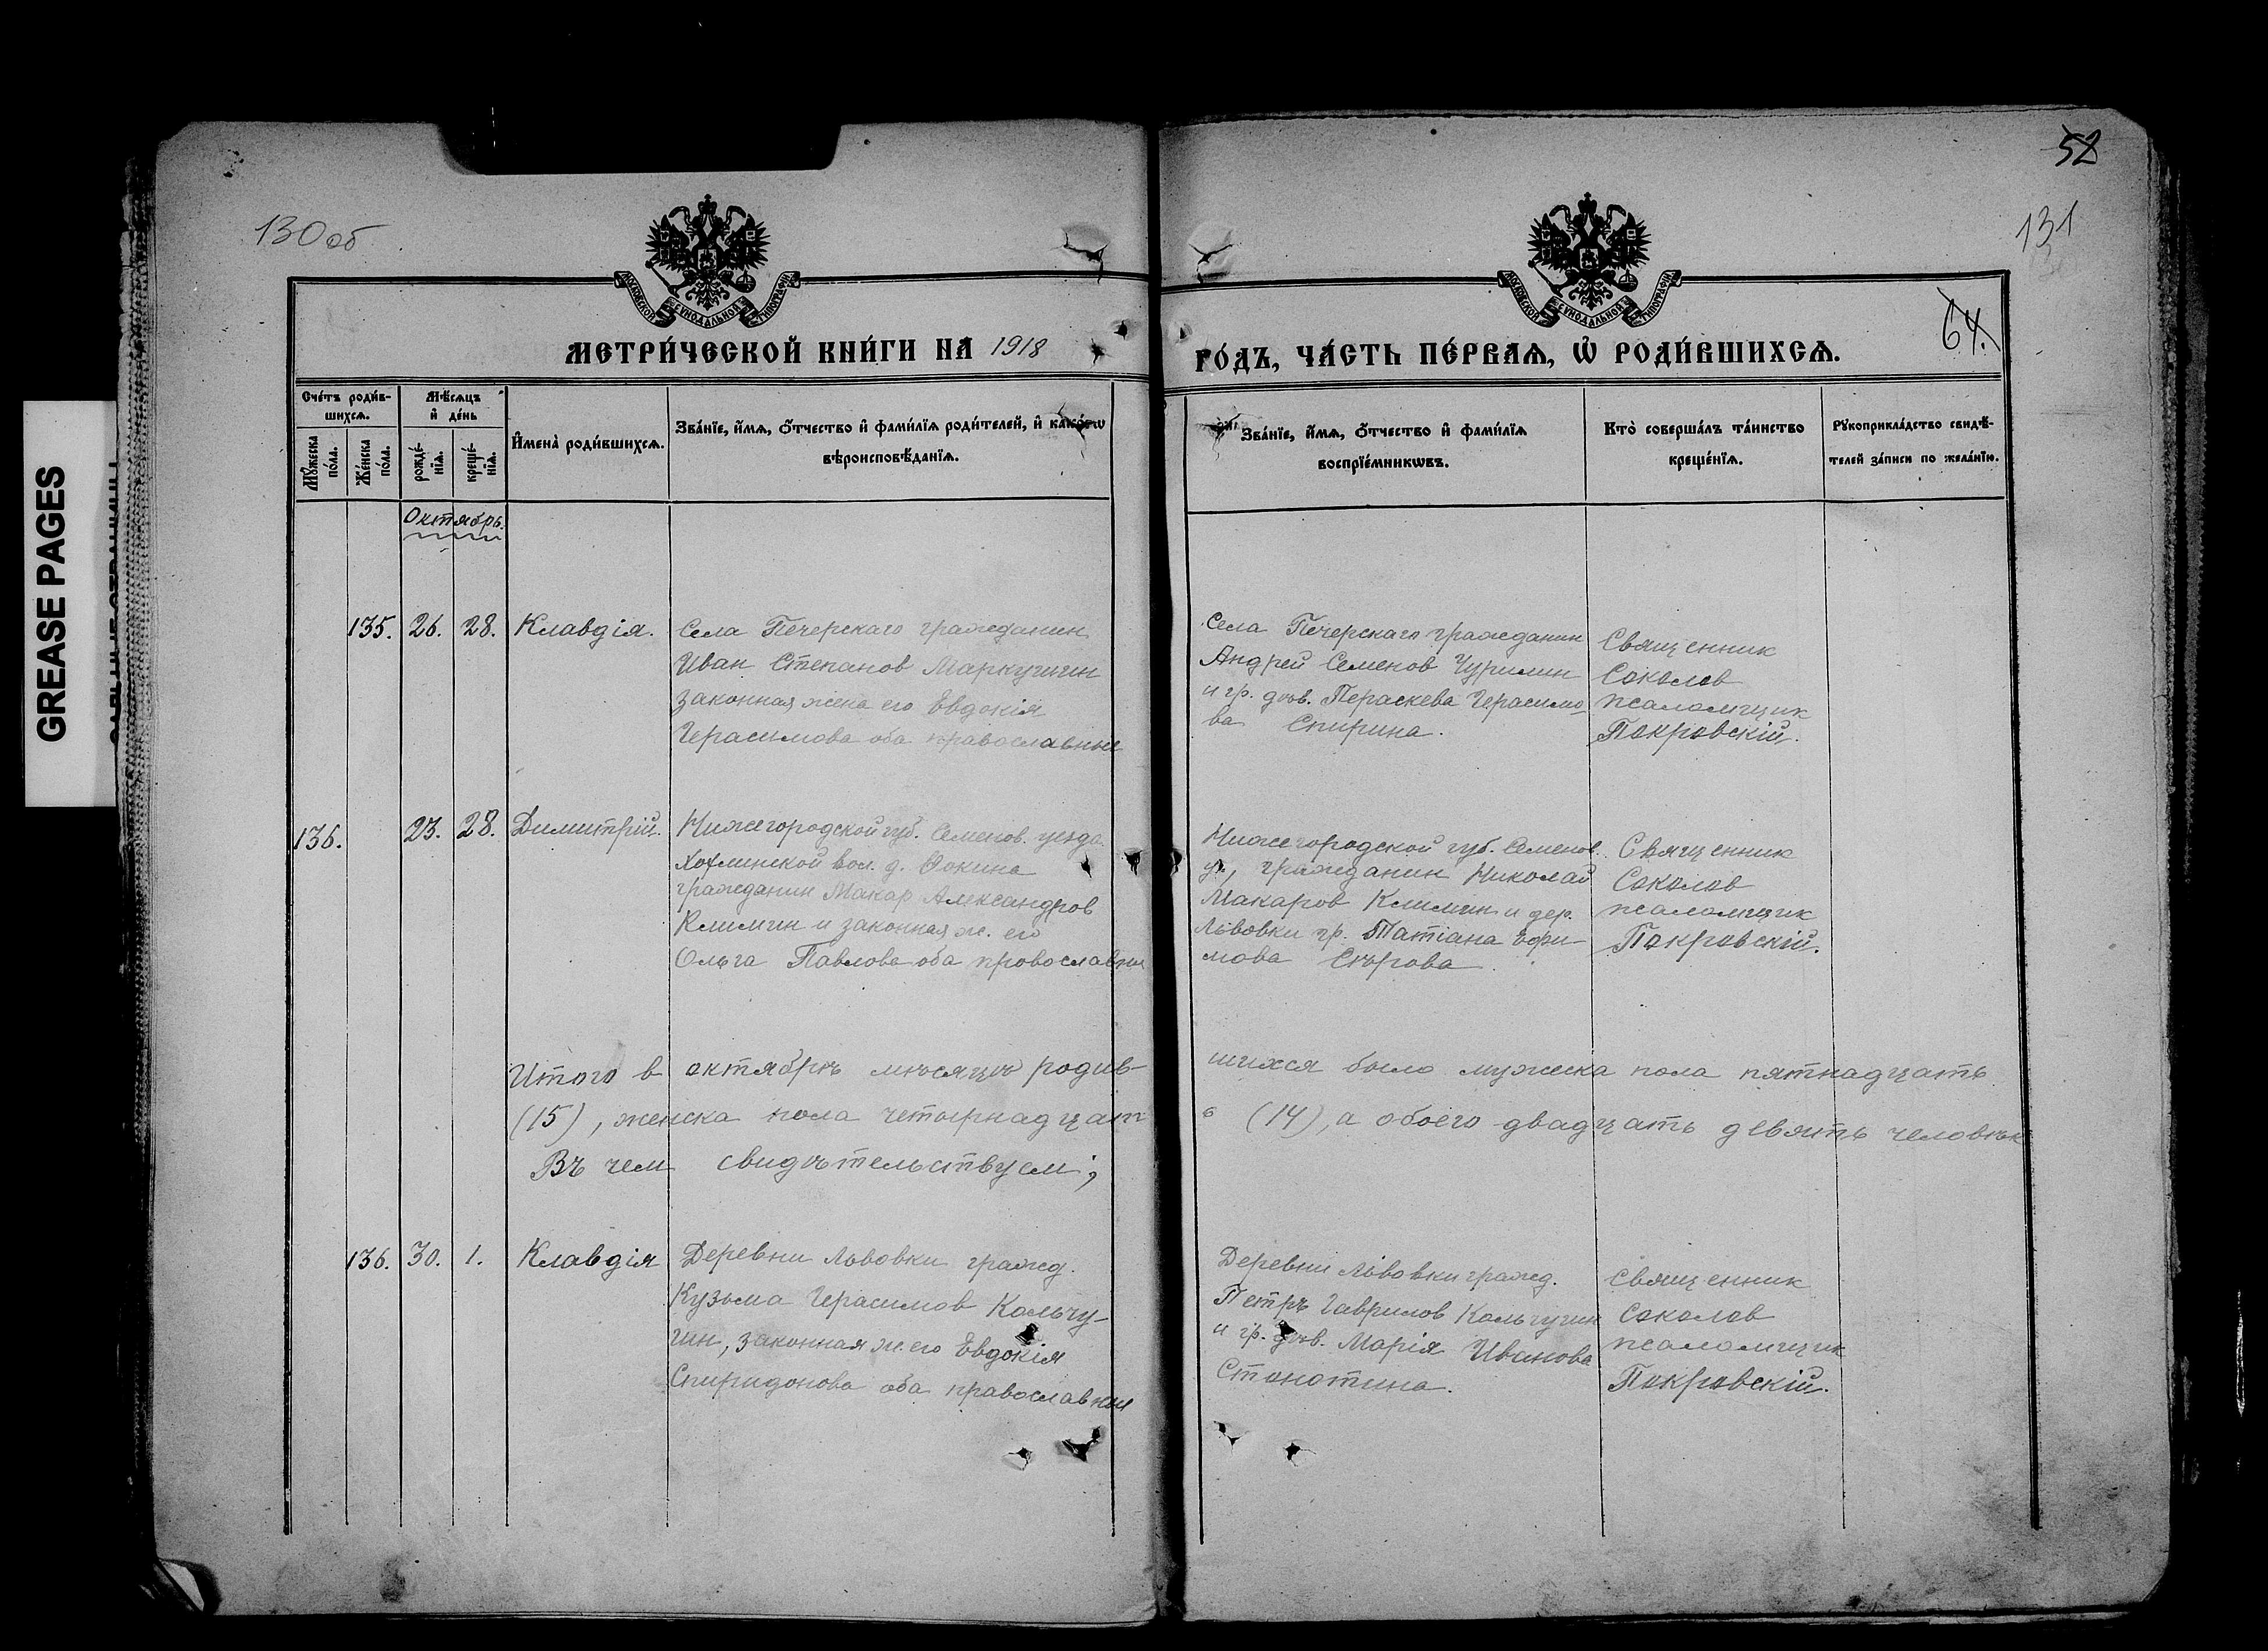 GREASE PAGES
130об
52
131
64.
МОСКОВСКОЙ СѴНОДАЛЬНОЙ ТИПОГРАФІИ
МОСКОВСКОЙ СѴНОДАЛЬНОЙ ТИПОГРАФІИ
МЕТРИ́ЧЕСКОЙ КНИ́ГИ НА 1918
ГО́ДЪ, ЧА́СТЬ ПЕ́РВАѦ, Ѡ҆ РОДИ́ВШИХСѦ.
Сче́тъ роди́в-
шихсѧ.
Мѣ́сѧцъ
и҆ де́нь
Мꙋ́жеска
по́ла.
Же́нска
по́ла.
рожде́-
нїѧ.
креще́-
нїѧ.
И҆мена̀ роди́вшихсѧ.
Зва́нїе, и҆́мѧ, ѻ҆́тчество и҆ фами́лїѧ роди́телей, и҆ како́гѡ
вѣроисповѣ́данїѧ.
Зва́нїе, и҆́мѧ, ѻ҆́тчество и҆ фами́лїѧ
воспрїе́мникѡвъ.
Кто̀ соверша́лъ та́инство
креще́нїѧ.
Рꙋкоприкла́дство свидѣ́-
телей за́писи по жела́нїю.
Октябрь.
135. 26. 28. Клавдія.
Села Печерскаго гражданин
Иван Степанов Маркушин
законная жена его Евдокія
Герасимова оба православные
Села Печерскаго гражданин
Андрей Семенов Чурилин
и гр. дѣв. Пераскева Герасимо-
ва Спирина.
Священник
Соколов
псаломщик
Покровскій.
136. 23. 28. Димитрій.
Нижегородской губ. Семенов. уезда
Хохлинской вол. д. Фокина
гражданин Макар Александров
Климин и законная ж. его
Ольга Павлова оба провославныи
Нижегородской губ. Семенов.
у., гражданин Николай
Макаров Климин и дер.
Львовки гр. Татіана Ефи-
мова Сѣрова.
Священник
Соколов
псаломщик
Покровскій.
Итого в октябрѣ мѣсяцѣ родив-
шихся было мужеска пола пятнадцать
(15), женска пола четырнадцат
ь (14), а обоего двадцать девять человѣк
Въ чем свидѣтельствуем;
136. 30. 1. Клавдія
Деревни Львовки гражд.
Кузьма Герасимов Кольчу-
гин, законная ж. его Евдокія
Спиридонова оба православныи
Деревни Львовки гражд.
Петръ Гаврилов Кольчугин
и гр. дѣв. Марія Иванова
Стонотина.
Священник
Соколов
псаломщик
Покровскій.